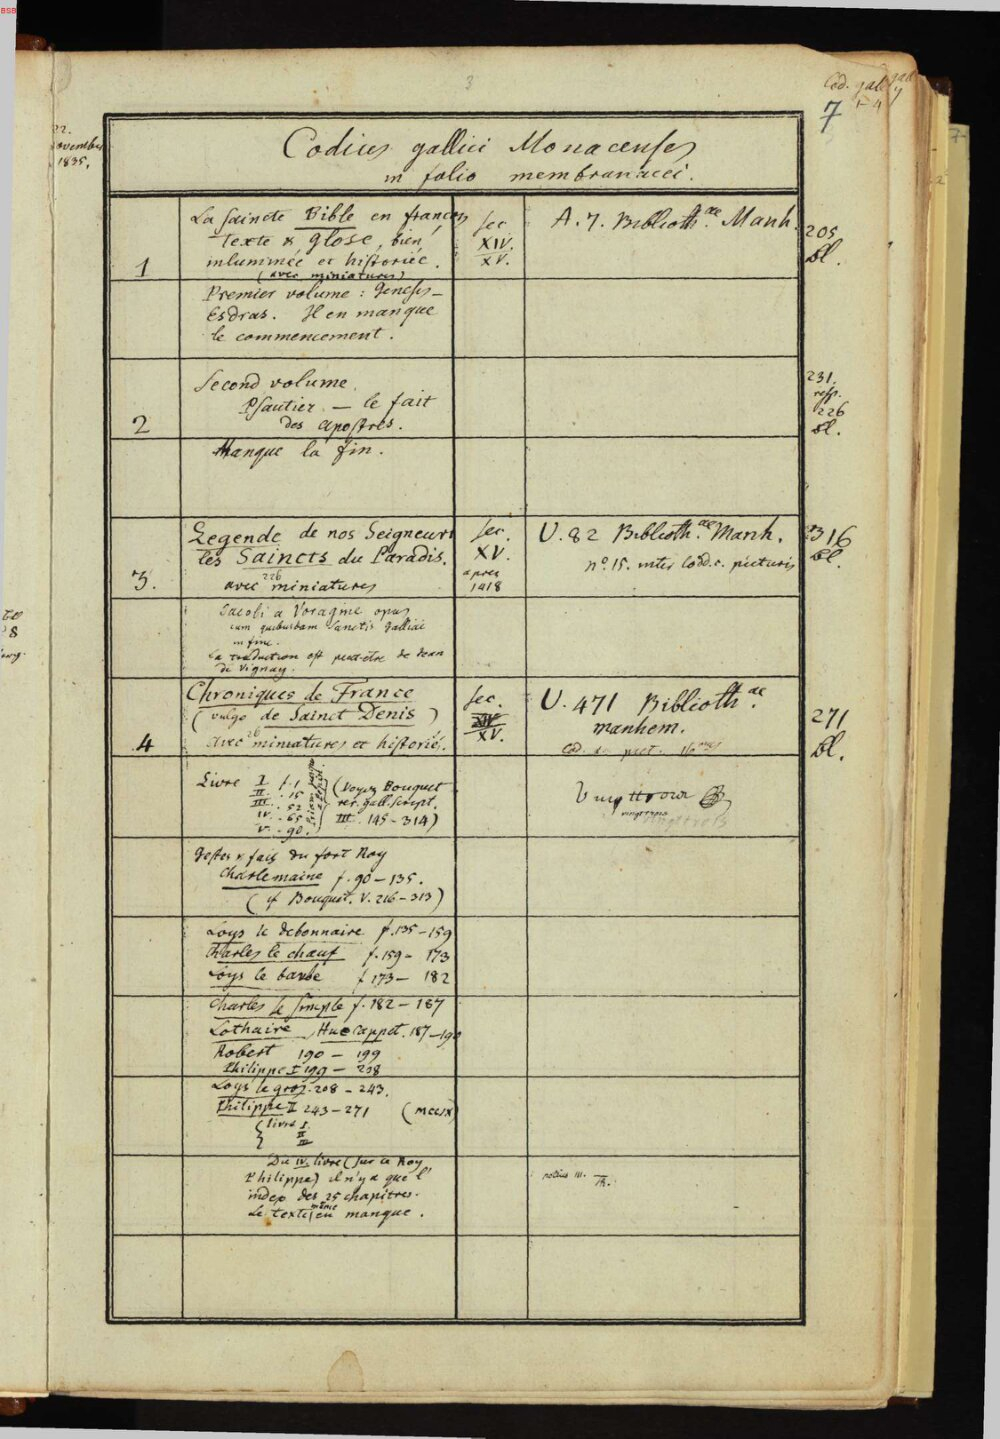 BSB
3
Cod. gall
7
1-4
22.
Novembr
1835.
Codices gallici Monacenses
in folio membranacei.
1
La Saincte Bible en francoys
texte & Glose, bien
inluminée et historiée.
(avec miniatures)
Sec.
XIV.
XV.
A. 7. Biblioth.ae Manh.
209
Bl.
Premier volume: Genesis-
Esdras. Il en manque
le commencement.
2
Second volume.
Psautier - le fait
des apostres.
231.
resp.
226
Bl.
Manque la fin.
3.
Legende de nos Seigneurs
les Saincts du Paradis.
avec 226 miniatures
Sec.
XV.
apres
1418
U. 82 Biblioth.ae Manh.
n.o 15. inter Codd. c. picturis
316
Bl.
Jacobi a Voragine opus
cum quibusdam Sanctis Galliae
in fine.
La traduction est peut-être de Jean
de Vignay.
4
Chroniques de France
(vulgo de Sainct Denis)
avec 26 miniatures et historiés.
Sec.
XIV
XV.
U. 471 Biblioth.ae
Manhem.
Cod. pict. 16
271
Bl.
Livre I f. 1
II. . 15
III. . 52
IV. - 65
V. - 90.
(Voyez Bouquet
rer. gall. script.
III. 145-314)
Gestes & fais du fort Roy
Charlemaine f. 90-135.
(cf Bouquet. V. 216-313)
Loys le debonnaire f. 135-159
Charles le chauf f. 159- 173
Loys le baube f 173- 182
Charles le Simple f. 182-187
Lothaire, Hue Cappet. 187-190
Robert 190 - 199
Philippe I 199- 208
Loys le gros. 208-243.
Philippe II 243-271 (MCCIX)
{livre I.
II
III
Du IV. livre (sur ce Roy
Philippe) il n'y a que l'
index des 25 chapitres.
Le texte même en manque.
potius III.